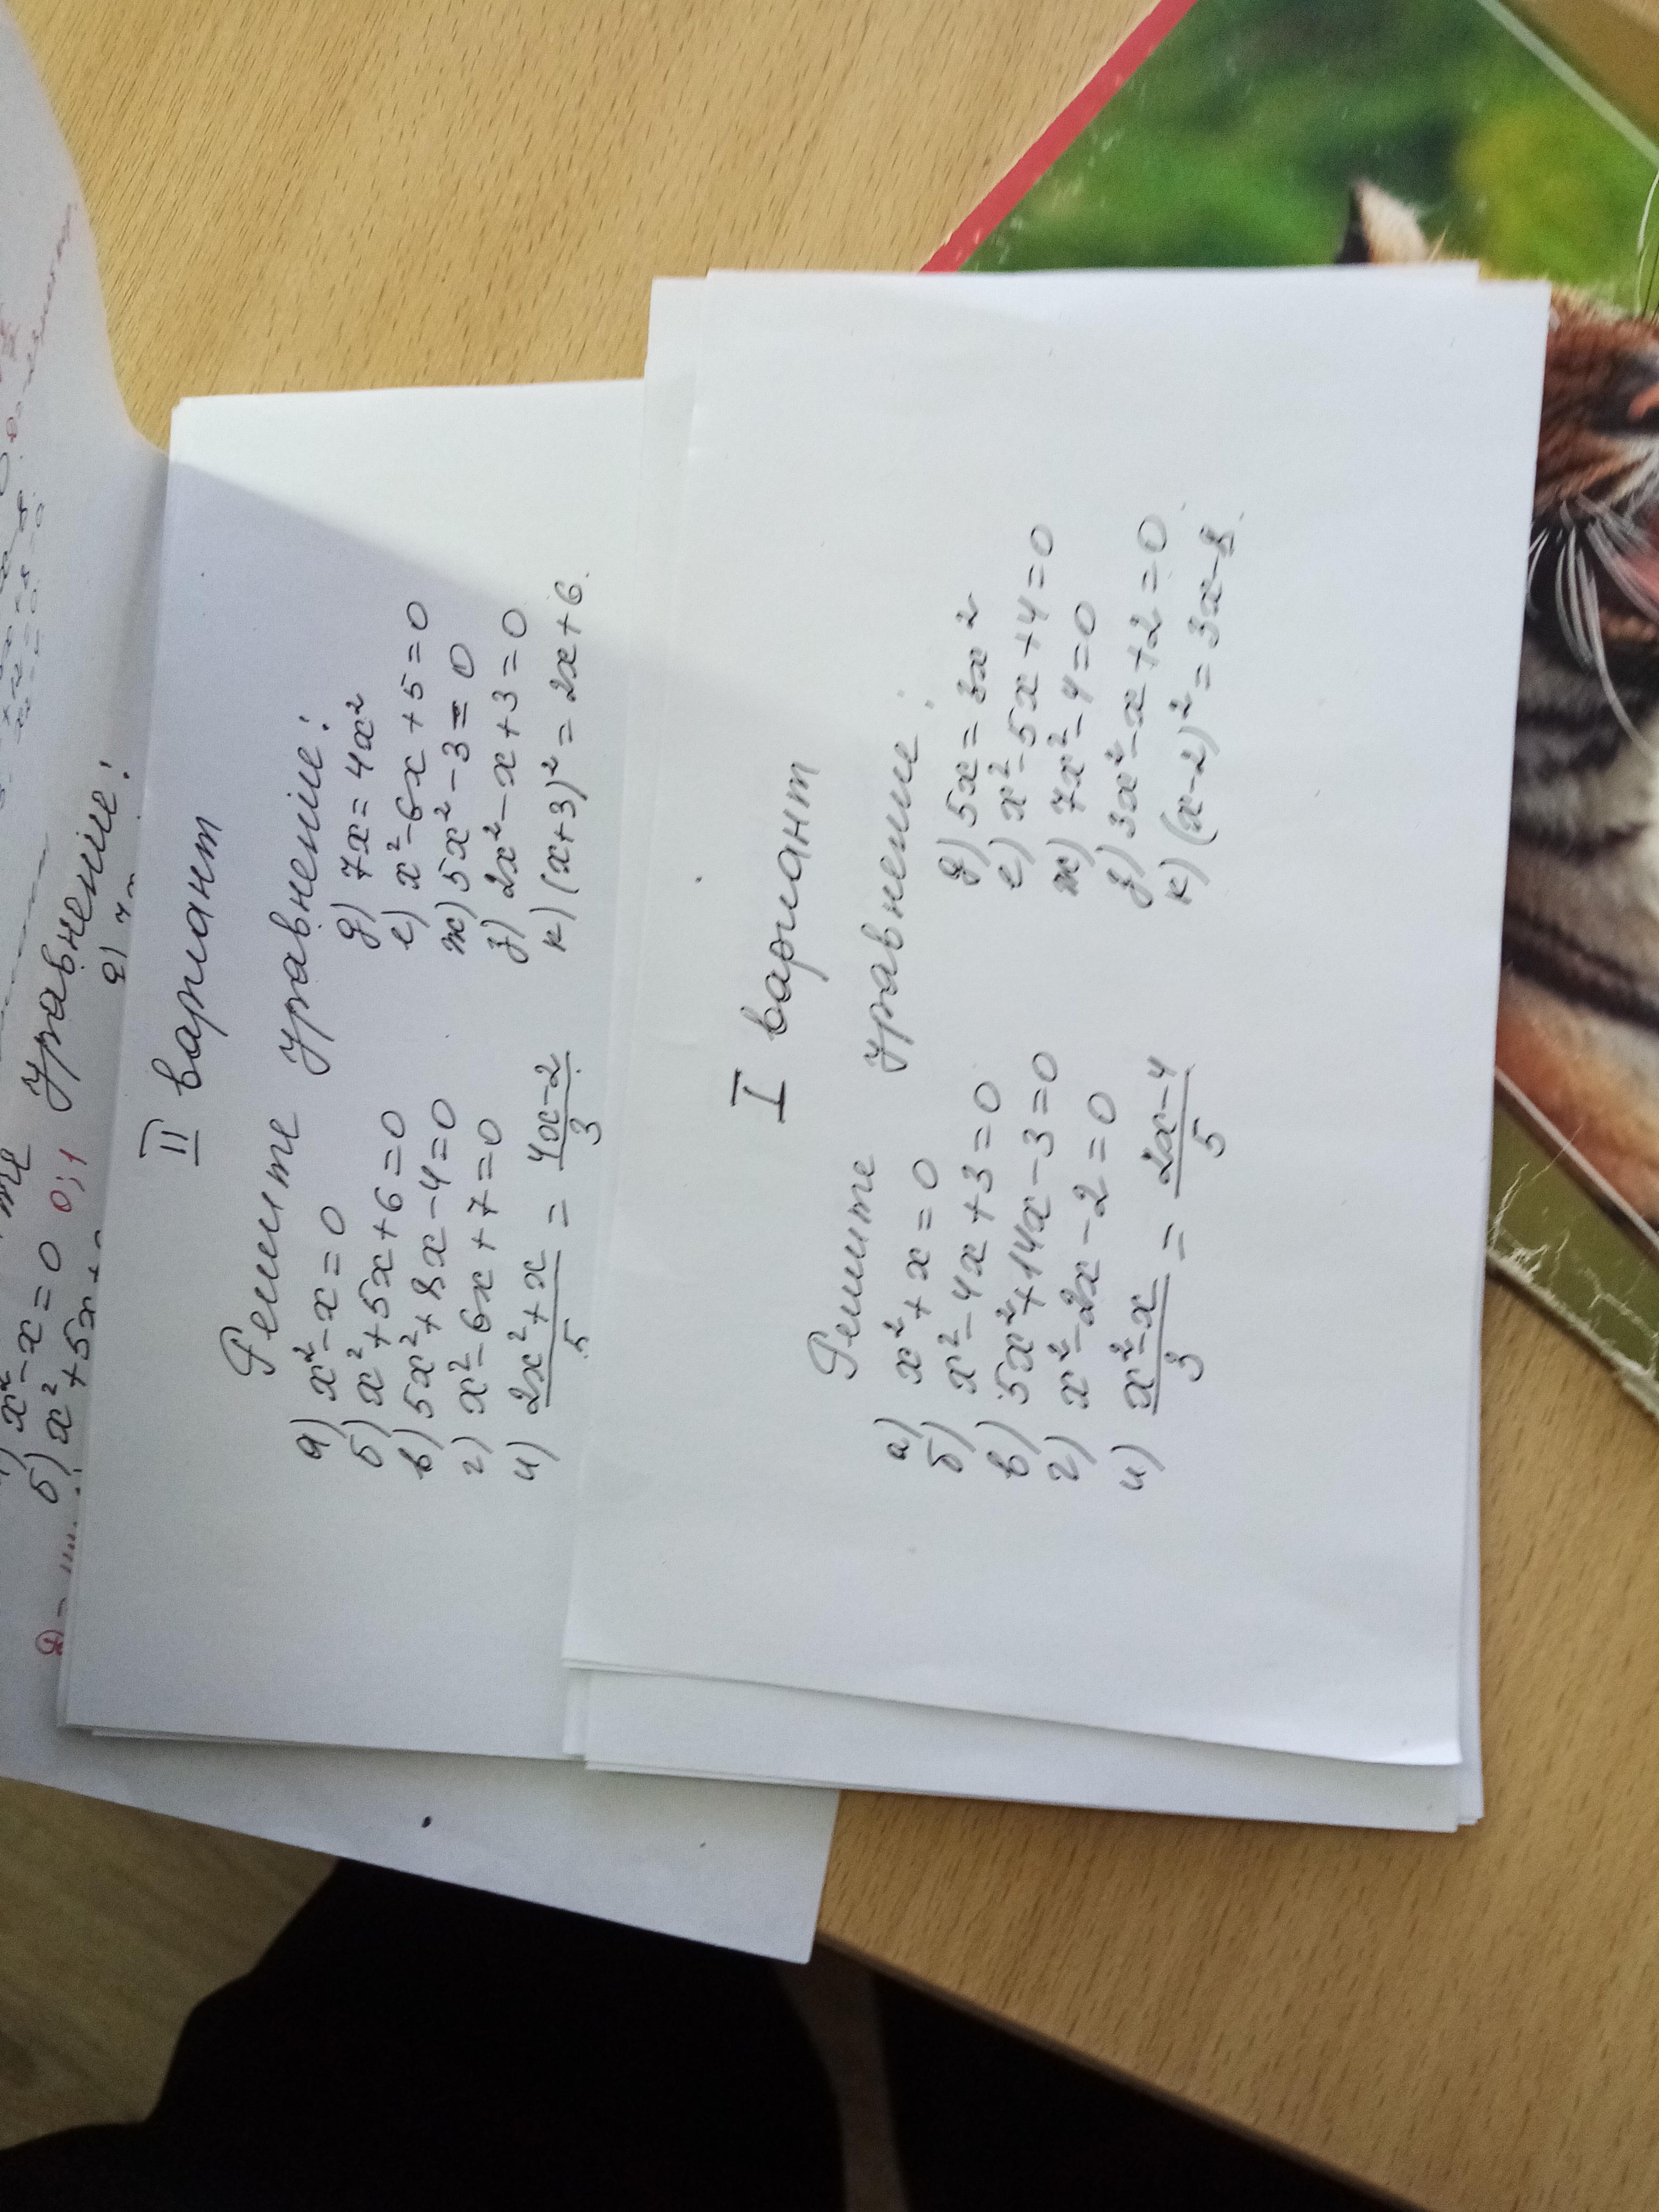 x² - x = 0 0; 1 уравнение:
б) x² + 5x +
II вариант
Решите уравнение:
а) x² - x = 0
б) x² + 5x + 6 = 0
в) 5x² + 8x - 4 = 0
г) x² - 6x + 7 = 0
и) (2x² + x)/5 = (4x - 2)/3
д) 7x = 4x²
е) x² - 6x + 5 = 0
ж) 5x² - 3 = 0
з) 2x² - x + 3 = 0
к) (x + 3)² = 2x + 6.
I вариант
Решите уравнение:
а) x² + x = 0
б) x² - 4x + 3 = 0
в) 5x² + 14x - 3 = 0
г) x² - 2x - 2 = 0
и) (x² - x)/3 = (2x - 4)/5
д) 5x = 3x²
е) x² - 5x + 4 = 0
ж) 7x² - 4 = 0
з) 3x² - x + 2 = 0
к) (x - 2)² = 3x - 8.